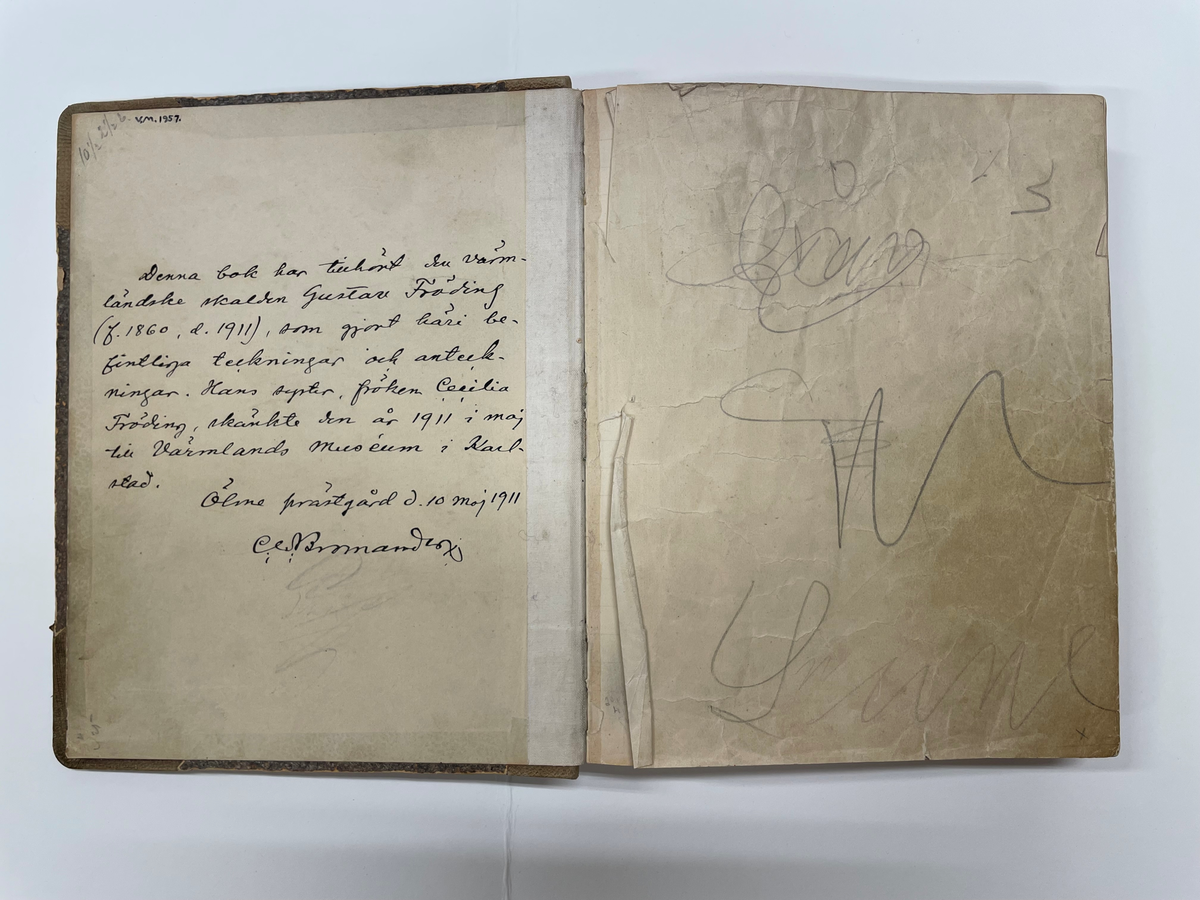 V.M. 1957.
Denna bok har tillhört den värm-
ländske skalden Gustaf Fröding
(f. 1860, d. 1911), som gjort häri be-
fintliga teckningar och anteck-
ningar. Hans syster, fröken Cecilia
Fröding, skänkte den år 1911 i maj
till Värmlands Museum i Karl-
stad.
Ölme prästgård d. 10 maj 1911